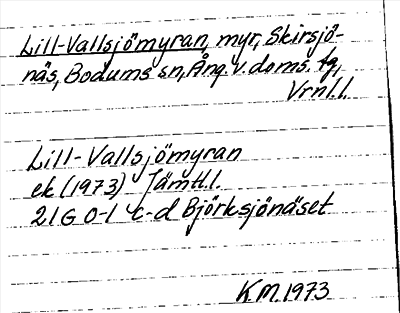 Lill-Vallsjömyran, myr, Skirsjö-
näs, Bodums sn, Ång. v. doms. tg,
Vrnl.l.
Lill-Vallsjömyran
ek (1973) Jämtl.l.
21G 0-1 c-d Björksjönäset
KM 1973